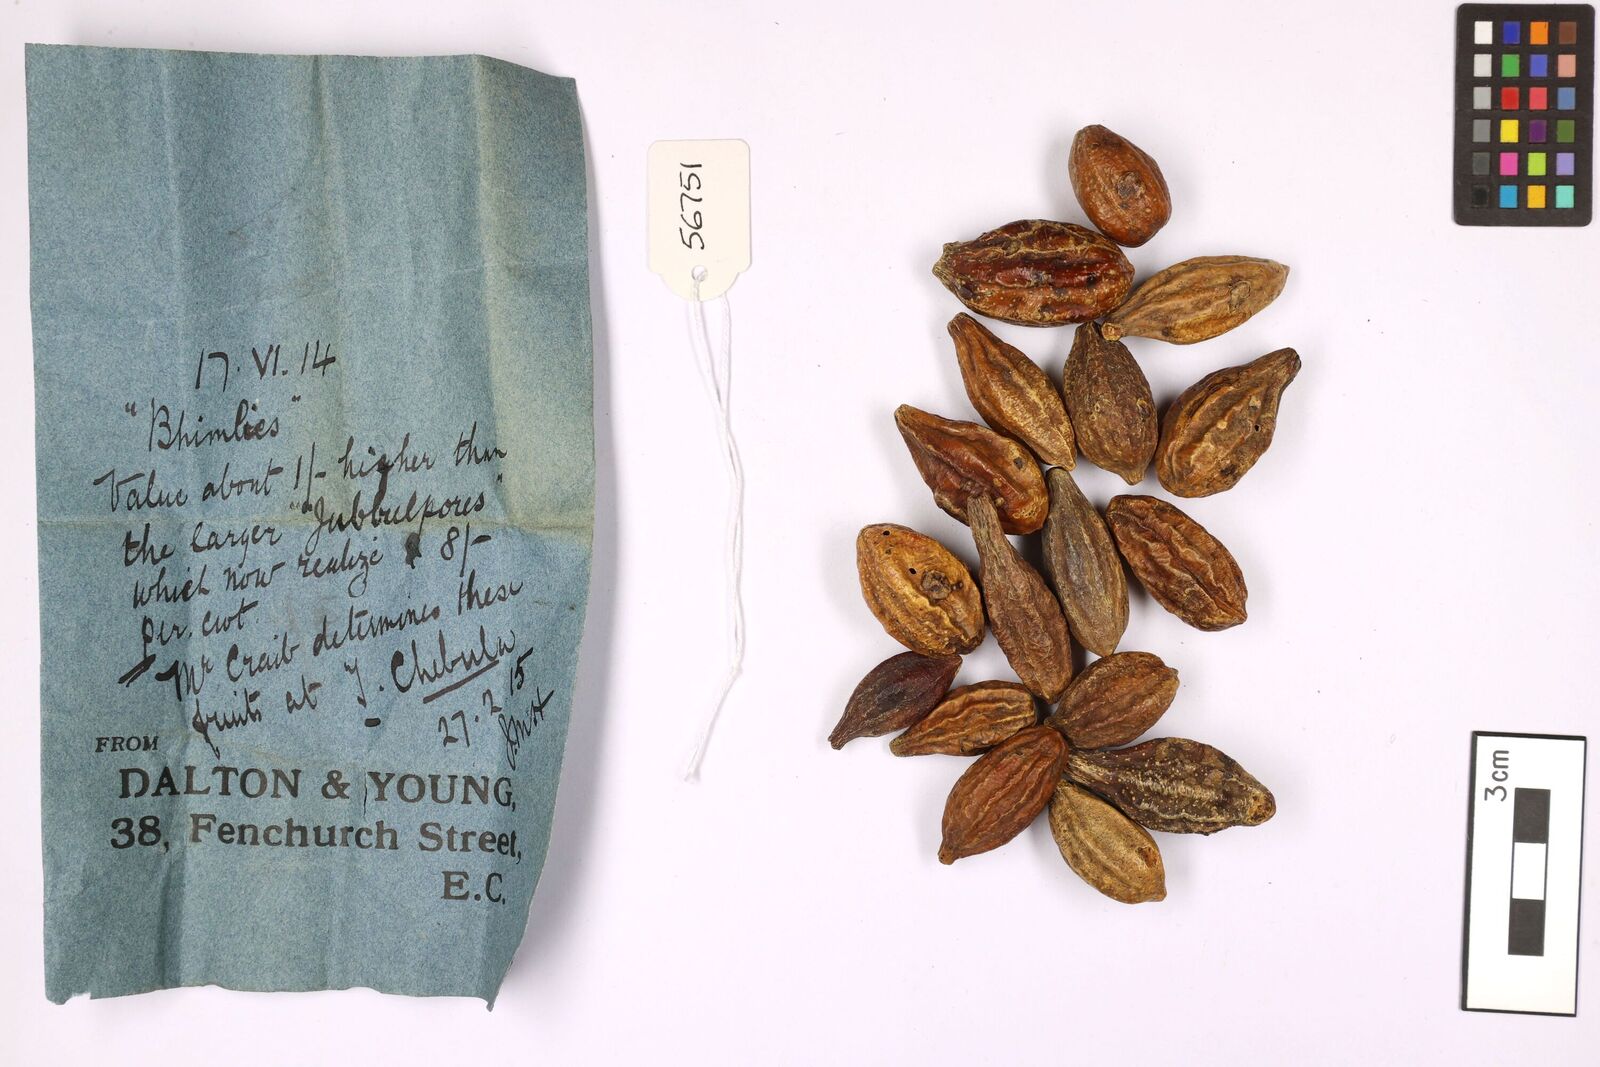 17.VI.14
"Bhimlies"
Value about 1/- higher than
the larger "Jubbulpores"
which now realize 8/-
per. cwt.
Mr Craib determines these
fruits at T. Chebula
27.2.15
JMH
FROM
DALTON & YOUNG,
38, Fenchurch Street,
E.C.
56751
3cm